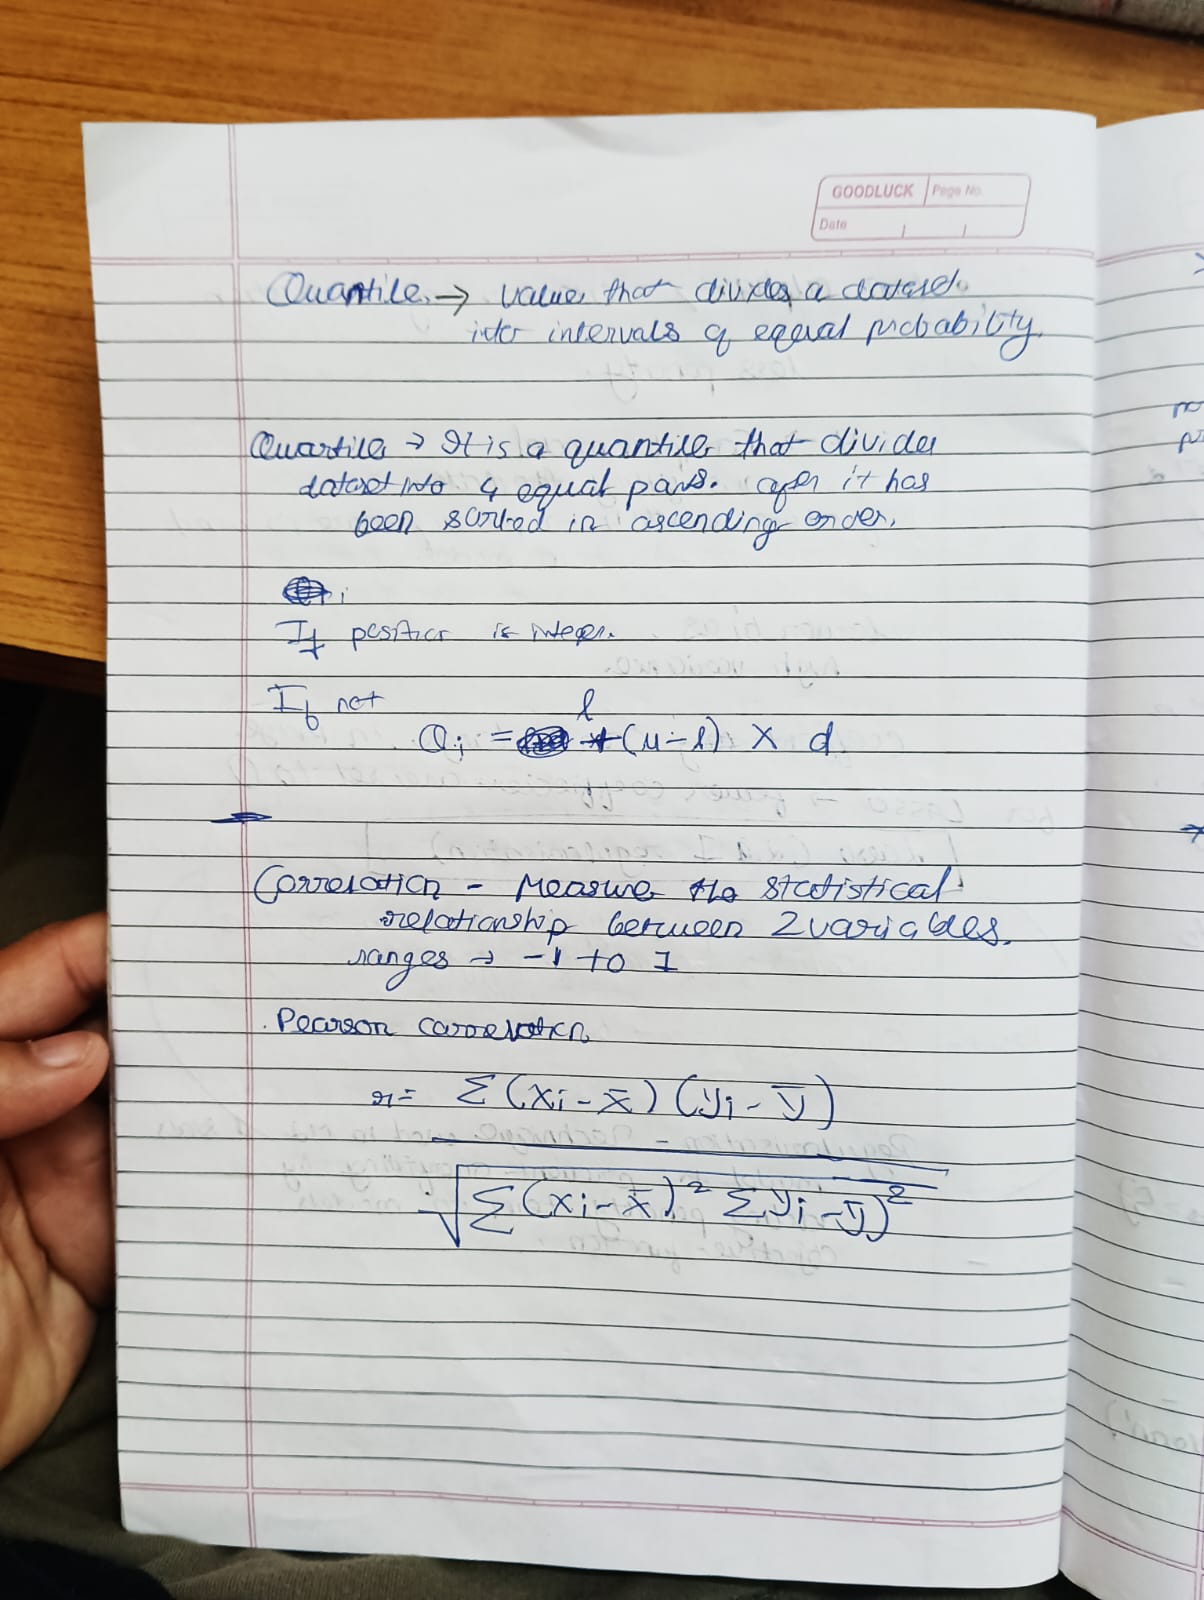 GOODLUCK Page No.
Date
Quantile → value that divides a dataset
into intervals of equal probability.
Quartile → It is a quantile that divides
dataset into 4 equal parts. after it has
been sorted in ascending order.
If position is integer.
If not
Qi = l + (u-l) × d
Correlation - Measure the statistical
relationship between 2 variables.
ranges → -1 to 1
Pearson correlation
r = Σ(xi - x̄)(yi - ȳ)
√Σ(xi - x̄)² Σyi - ȳ)²